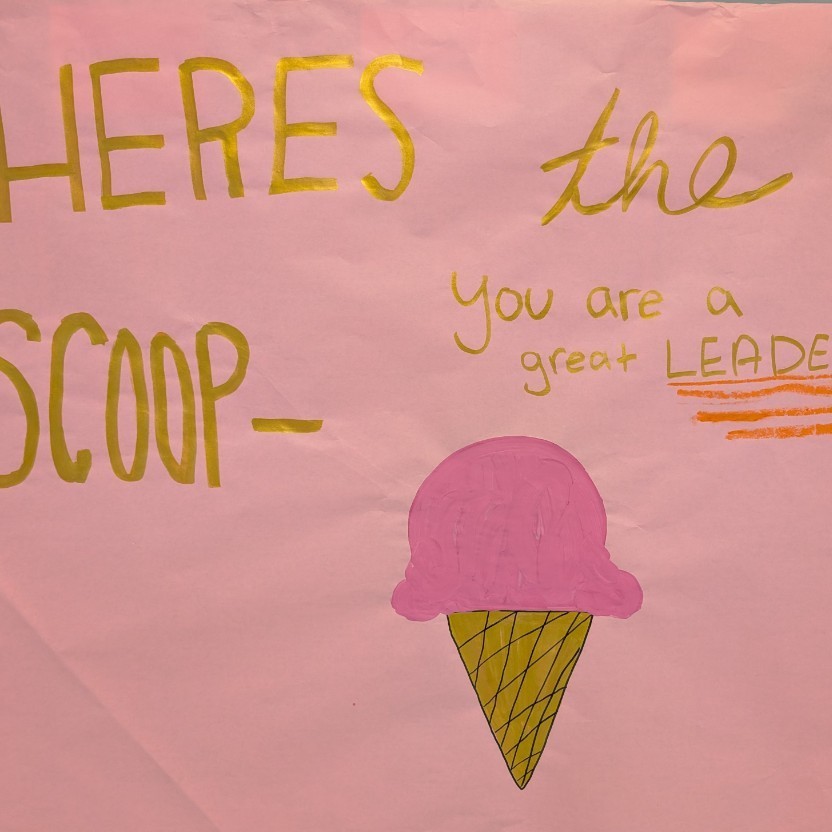 HERES the
SCOOP-
You are a
great LEADE